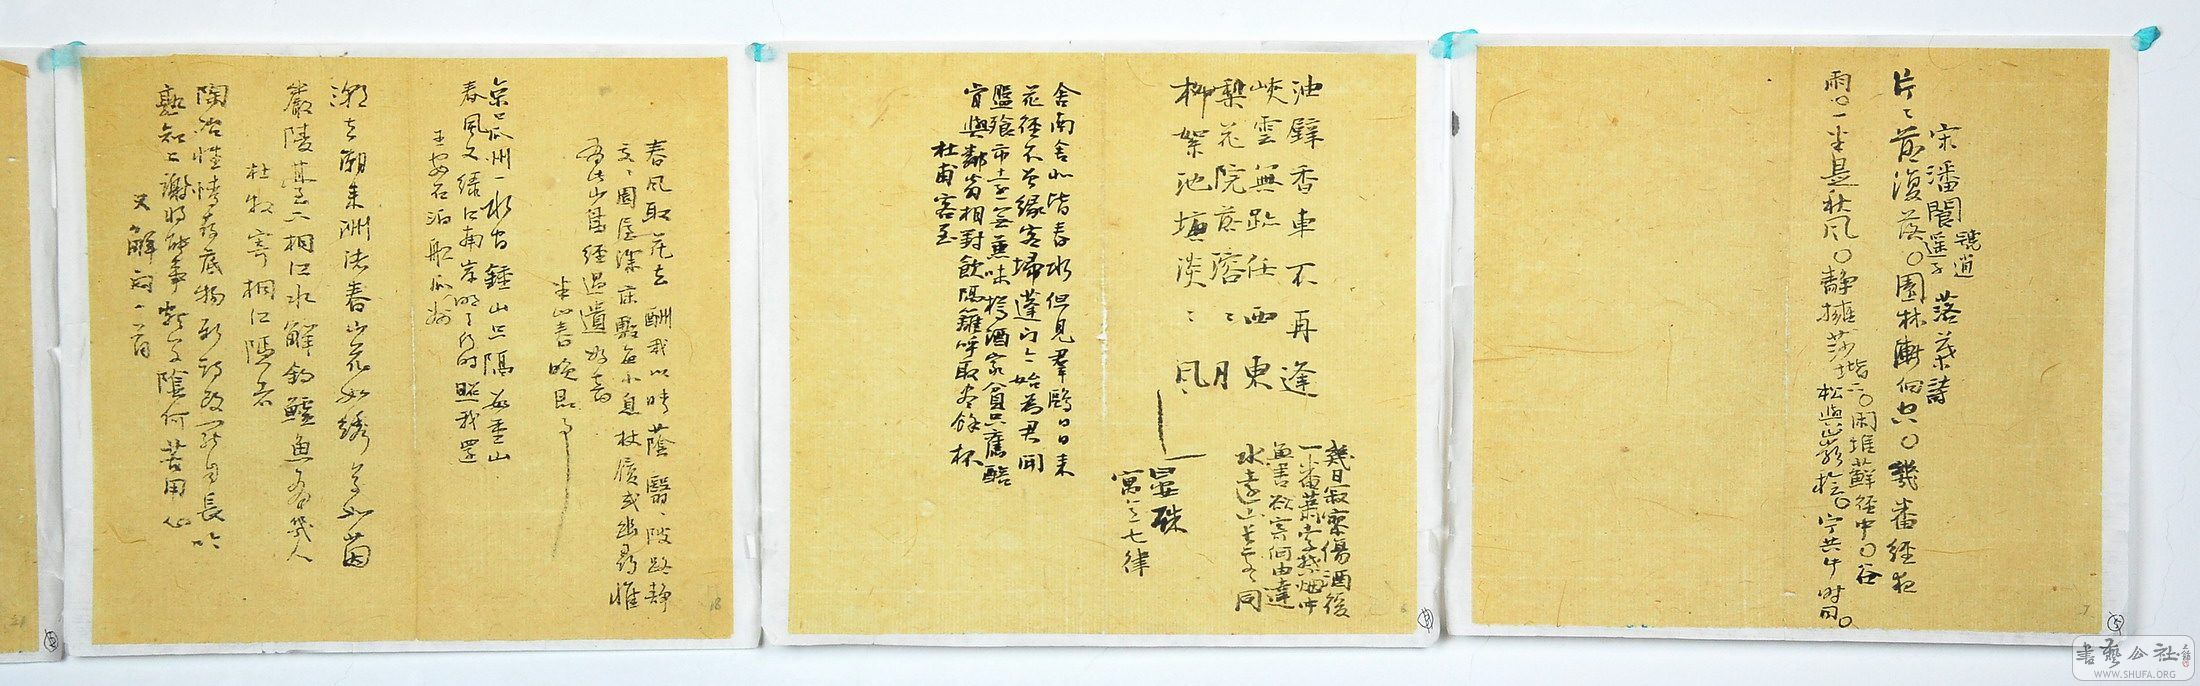 宋潘閬號逍遥子 落葉詩
片〻落復落〇園林漸向空〇幾番經夜
雨〇一半是秋風〇靜擁莎堦下〇閑堆蘚徑中〇谷
松與巖檜〇寧共此時同〇
7
5
油壁香車不再逢
峽雲無跡任西東
梨花院落溶〻月
柳絮池塘淡〻風
幾日寂寥傷酒後
一番蕭索禁烟中
魚書欲寄何由達
水遠山長處〻同
晏殊
寓意七律
舍南舍北皆春水但見羣鷗日日来
花徑不曾緣客掃蓬门今始為君開
盤飱市遠無兼味樽酒家貧只舊醅
肯與鄰翁相對飲隔籬呼取盡餘杯
杜甫客至
6
春風取花去酬我以清蔭翳〻陂路靜
交〻園屋深床敷每小息杖屨或幽尋惟
有北山鳥經過遺好音
半山春晚即事
京口瓜州一水間鍾山只隔數重山
春風又緑江南岸明月何時照我還
王安石泊船瓜州
潮去潮来洲渚春山花如繡草如茵
嚴陵臺下桐江水解釣鱸魚有幾人
杜牧寄桐江隱者
陶冶性情存底物新詩改罷自長吟
熟知二謝將能事頗學陰何苦用心
又解悶一首
18
21
書藝公社
WWW.SHUFA.ORG